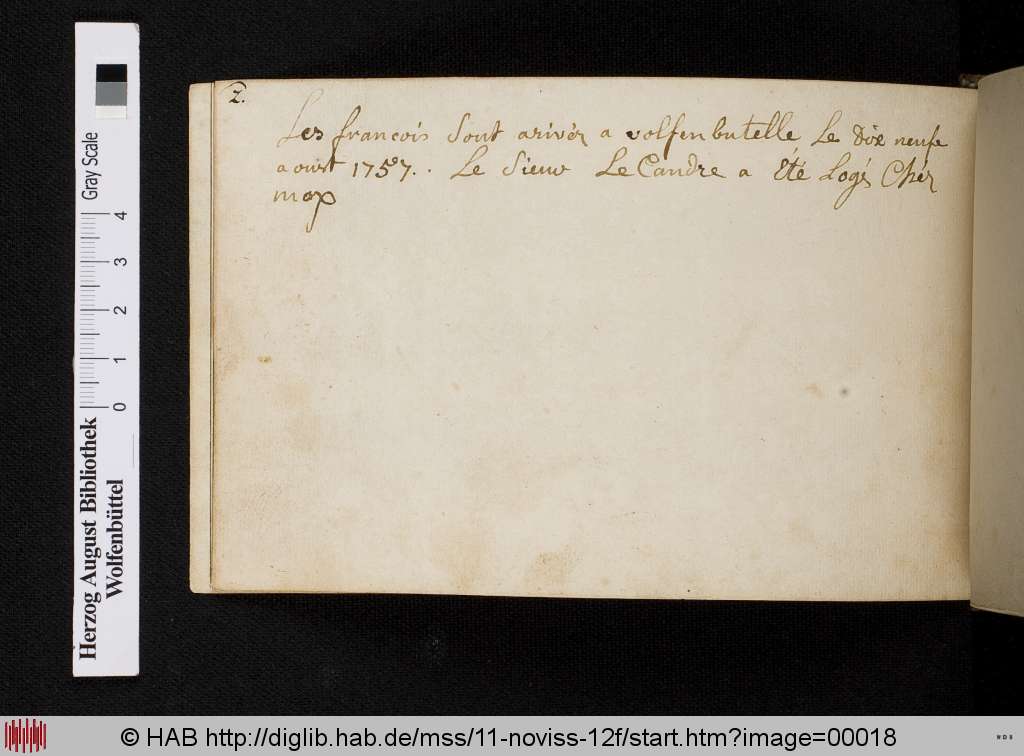 2.
Les francois sont arivér a volfenbutelle Le dix neufe
aoust 1757.. Le Sieur LeCandre a Eté Logé Cher
mop
Herzog August Bibliothek
Wolfenbüttel
Gray Scale
0 1 2 3 4
© HAB http://diglib.hab.de/mss/11-noviss-12f/start.htm?image=00018